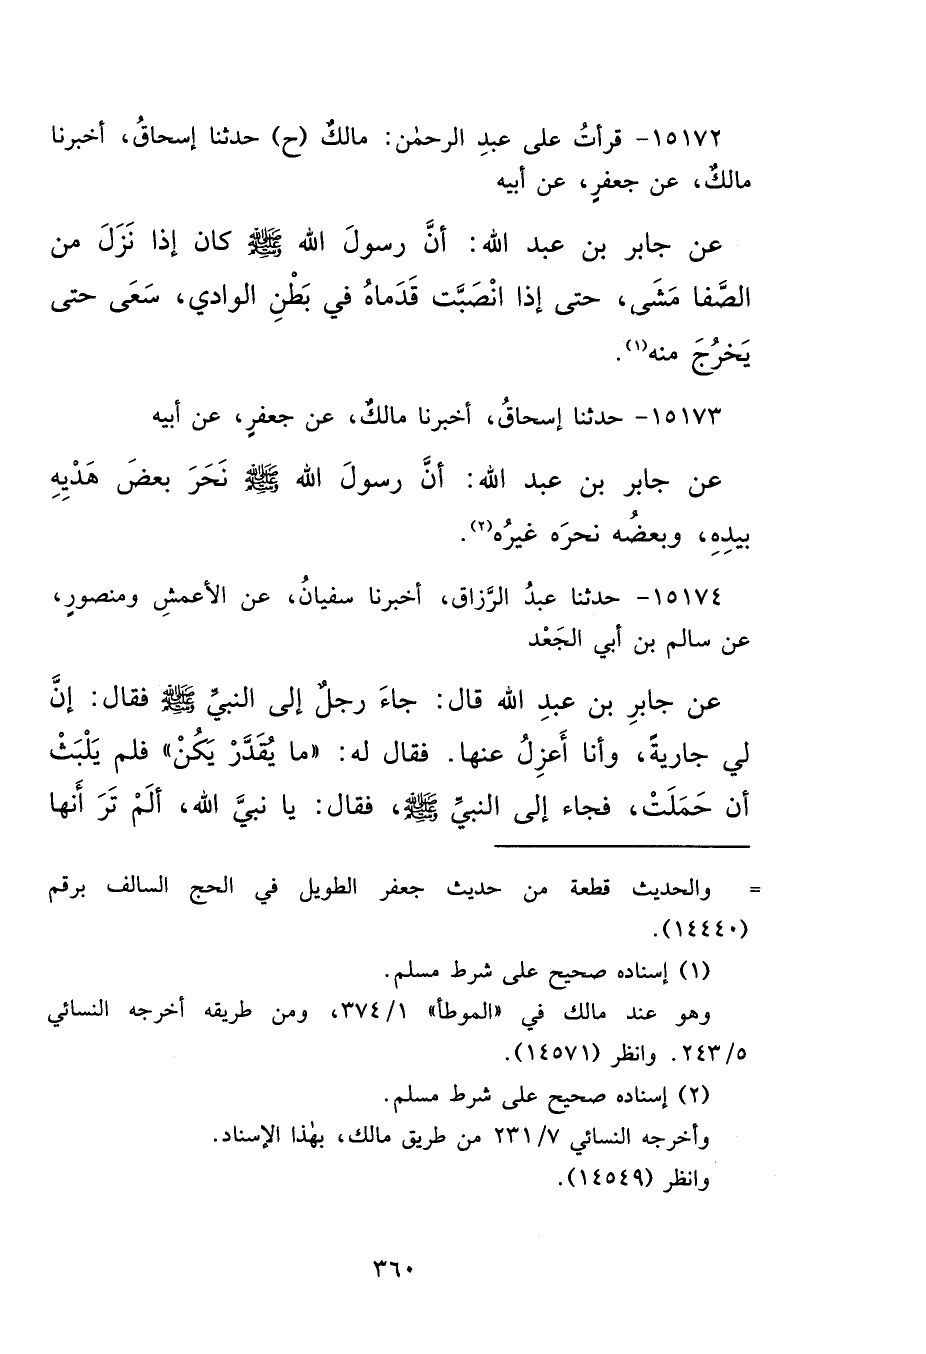 ١٥١٧٢- قرأتُ على عبدِ الرحمٰن: مالكٌ (ح) حدثنا إسحاقُ، أخبرنا
مالكٌ، عن جعفرٍ، عن أبيه
عن جابر بن عبد الله: أنَّ رسولَ الله ﷺ كان إذا نَزَلَ من
الصَّفا مَشَى، حتى إذا انْصَبَّت قَدَماهُ في بَطْنِ الوادي، سَعَى حتى
يَخرُجَ منه(١).
١٥١٧٣- حدثنا إسحاقُ، أخبرنا مالكٌ، عن جعفرٍ، عن أبيه
عن جابر بن عبد الله: أنَّ رسولَ الله ﷺ نَحَرَ بعضَ هَدْيِهِ
بيدِهِ، وبعضُه نحرَه غيرُه(٢).
١٥١٧٤- حدثنا عبدُ الرَّزاق، أخبرنا سفيانُ، عن الأعمشِ ومنصورٍ،
عن سالم بن أبي الجَعْد
عن جابرِ بن عبدِ الله قال: جاءَ رجلٌ إلى النبيِّ ﷺ فقال: إنَّ
لي جاريةً، وأنا أَعزِلُ عنها. فقال له: «ما يُقَدَّرْ يَكُنْ» فلم يَلْبَثْ
أن حَمَلَتْ، فجاء إلى النبيِّ ﷺ، فقال: يا نبيَّ الله، ألَمْ تَرَ أَنها
= والحديث قطعة من حديث جعفر الطويل في الحج السالف برقم
(١٤٤٤٠).
(١) إسناده صحيح على شرط مسلم.
وهو عند مالك في «الموطأ» ٣٧٤/١، ومن طريقه أخرجه النسائي
٢٤٣/٥. وانظر (١٤٥٧١).
(٢) إسناده صحيح على شرط مسلم.
وأخرجه النسائي ٢٣١/٧ من طريق مالك، بهٰذا الإسناد.
وانظر (١٤٥٤٩).
٣٦٠